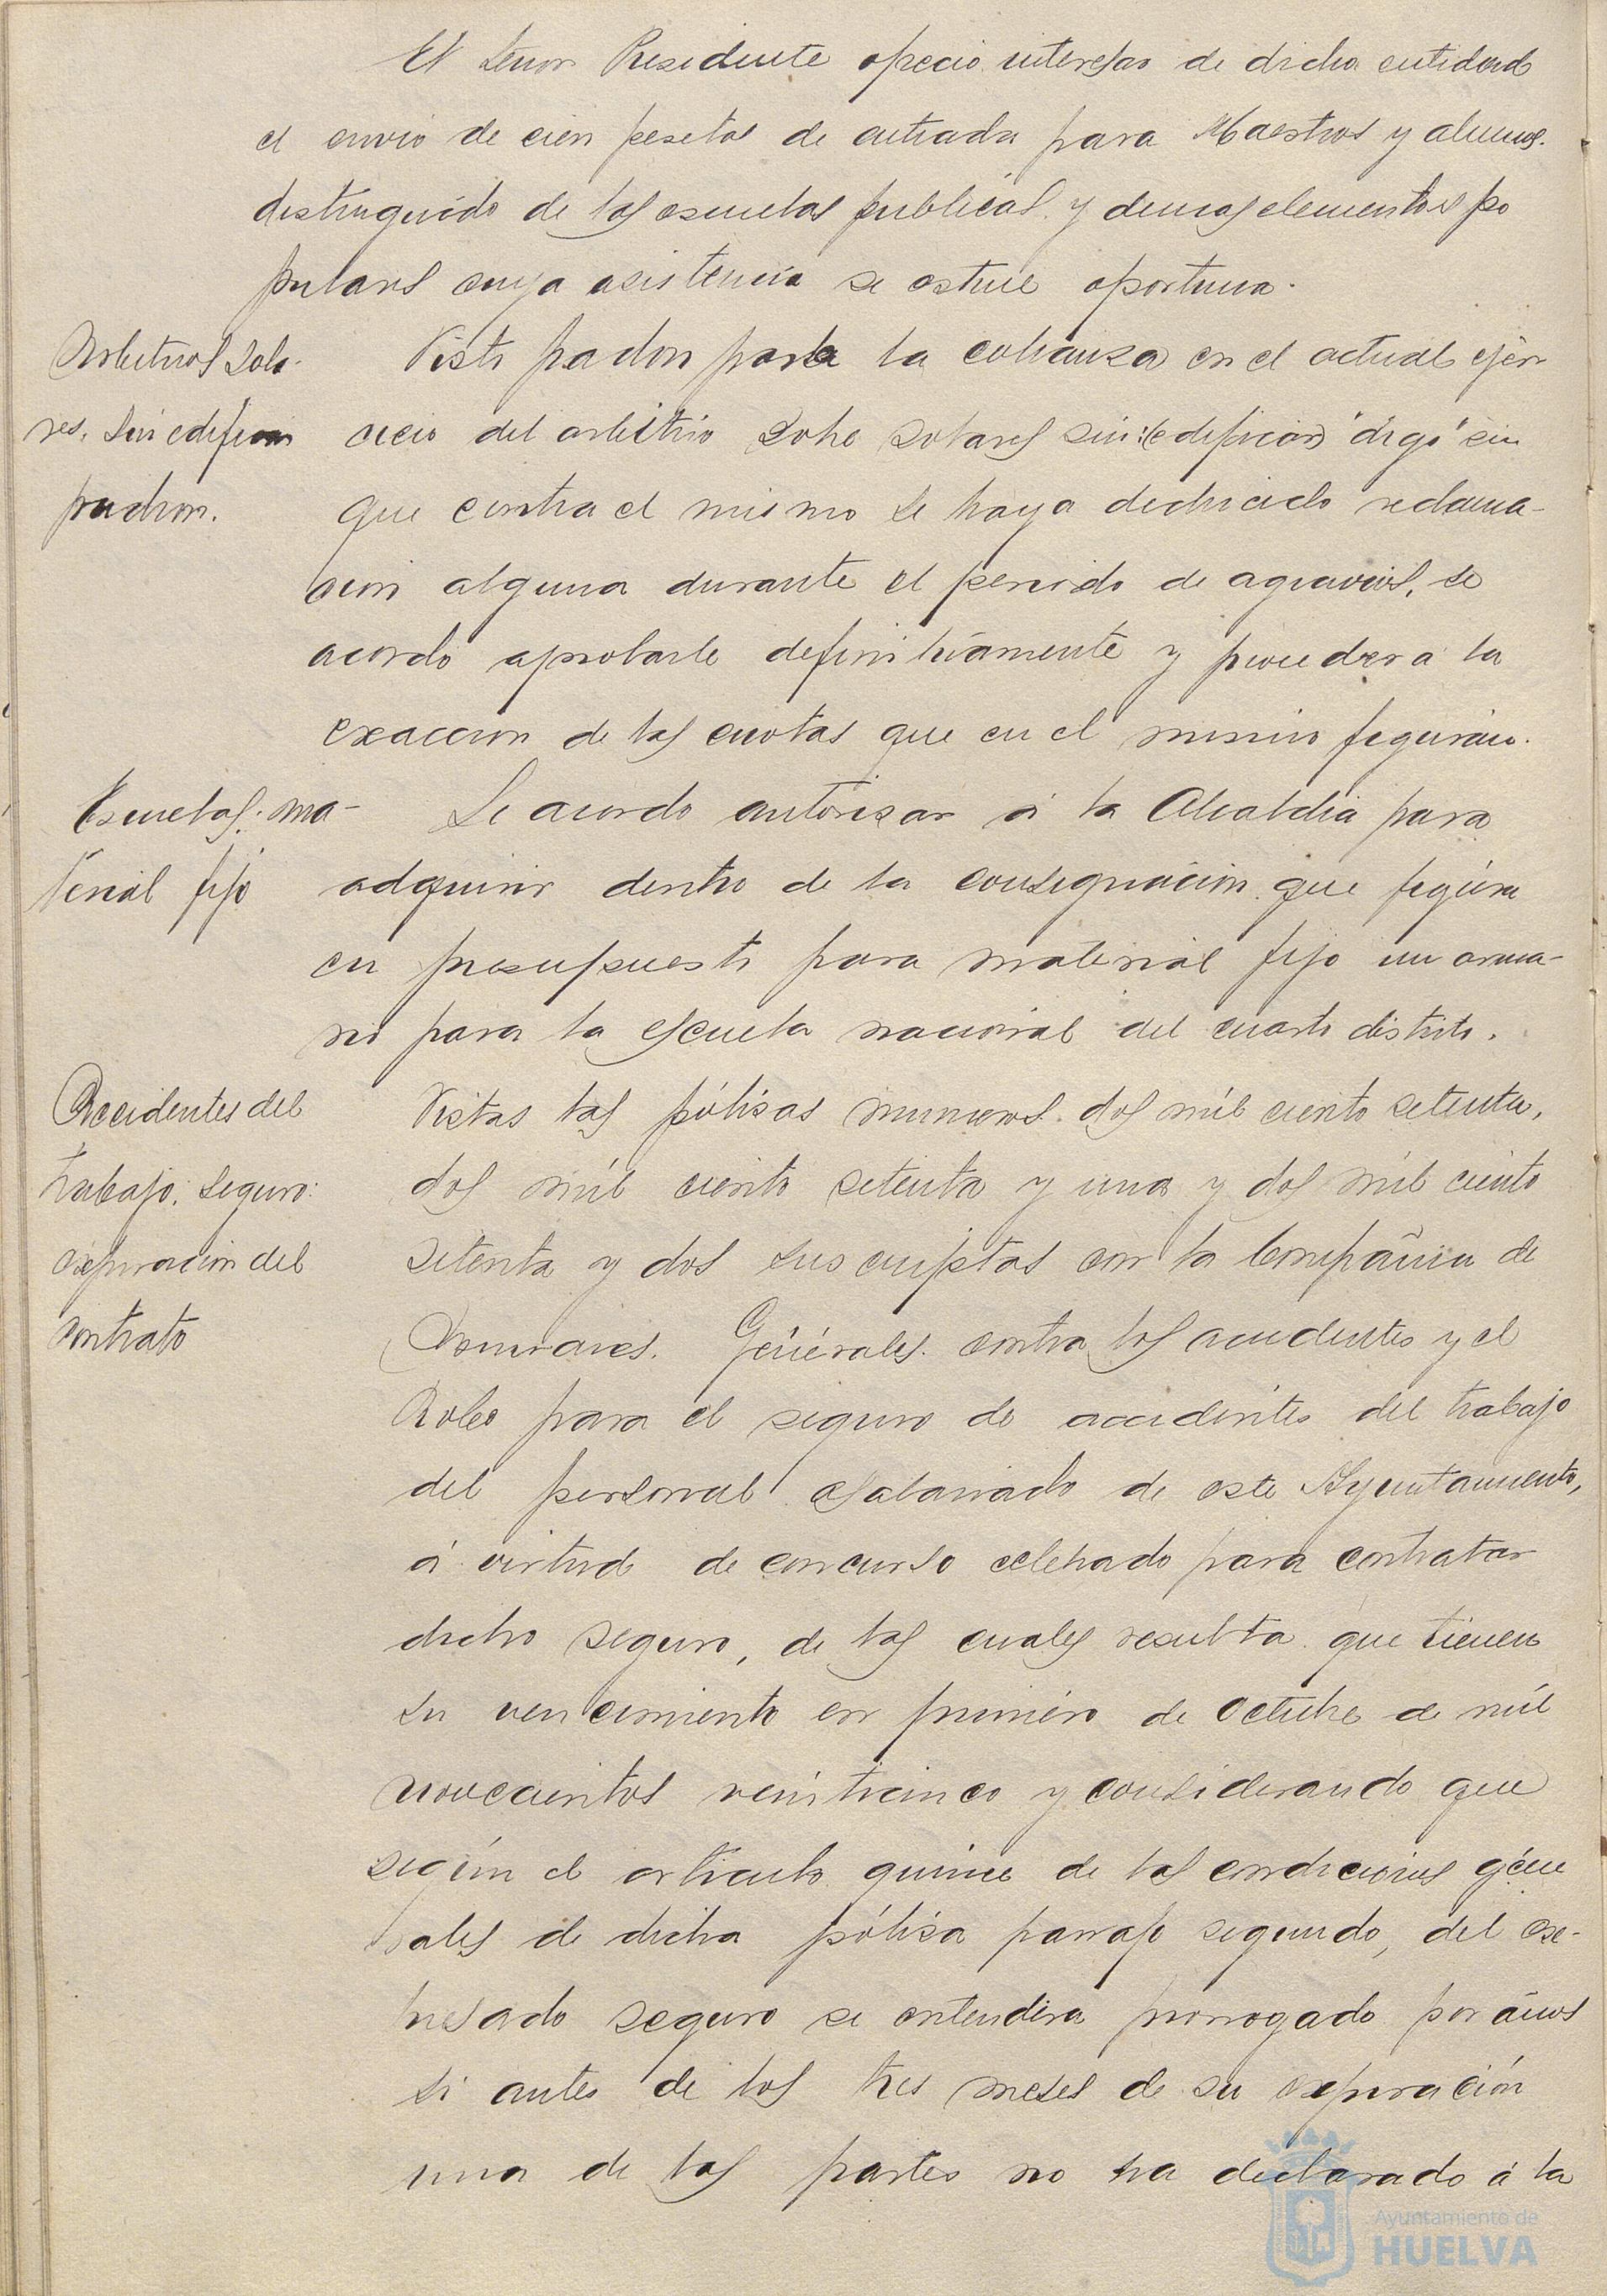 El Señor Presidente ofreció interesar de dicha entidad
el envio de cien pesetas de entrada para Maestros y alumnos
distinguido de las escuelas publicas y demas elementos po
pulares cuya asistencia se estime oportuna.
Arbitrios Sola-
res. sin edificar
padron.
Visto padron para la cobranza en el actual ejer
cicio del arbitrio sobre solares sin (edificar) "digo" sin
que contra el mismo se haya deducido reclama-
cion alguna durante el periodo de agravios, se
acordó aprobarle definitivamente y proceder a la
exaccion de las cuotas que en el mismo figuran.
Escuelas: ma-
terial fijo
Se acordo autorizar á la Alcaldia para
adquirir dentro de la consignación que figura
en presupuesto para material fijo un arma-
rio para la escuela nacional del cuarto distrito.
Accidentes del
trabajo. Seguro:
expiración del
contrato
Vistas las pólizas numeros dos mil ciento setenta,
dos mil ciento setenta y una y dos mil ciento
setenta y dos suscriptas con la Compañia de
Seguros Generales contra los accidentes y el
Robo para el seguro de accidentes del trabajo
del personal asalariado de este Ayuntamiento,
á virtud de concurso celebrado para contratar
dicho seguro, de las cuales resulta que tienen
su vencimiento en primero de Octubre de mil
novecientos veinticinco y considerando que
según el articulo quince de las condiciones gene
rales de dicha póliza parrafo segundo, del ex-
presado seguro se entendera prorrogado por años
si antes de los tres meses de su expiración
una de las partes no ha declarado á la
Ayuntamiento de
HUELVA